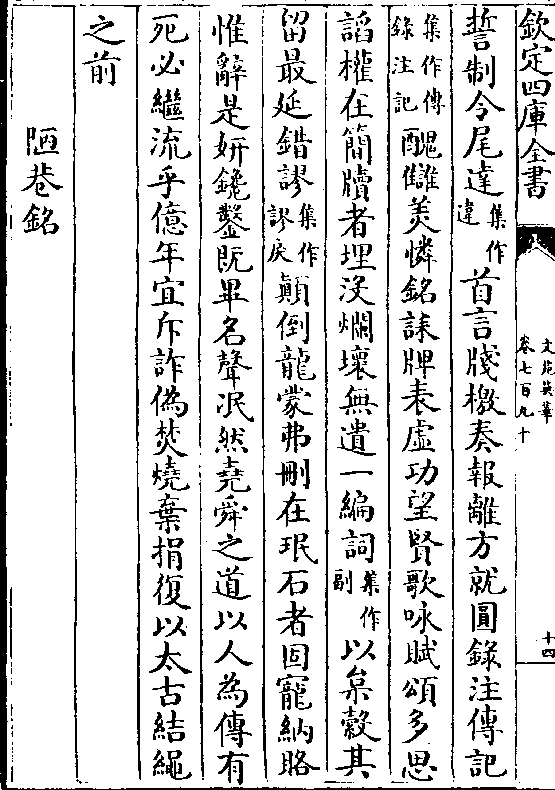 欽定四庫全書
文苑英華
卷七百九十
十四
誓制令尾達集作違首言牋檄奏報離方就圓錄注傳記
集作傳錄注記醜讎美憐銘誄牌表虛功望賢歌咏賦頌多思
謟權在簡牘者埋沒爛壞無遺一編詞集作副以枲縠其
留最延錯謬集作謬戾顛倒龍蒙弗刪在珉石者固寵納賂
惟辭是妍鑱鏨既畢名聲泯然堯舜之道以人為傳有
死必繼流乎億年宜斥詐偽焚燒棄捐復以太古結繩
之前
陋巷銘